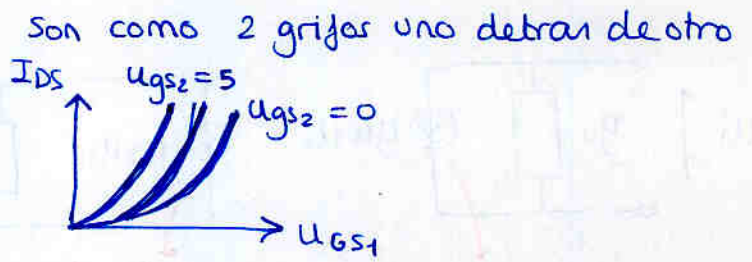 Son como 2 grifos uno detras de otro
IDS ugs2=5
ugs2=0
UGS1